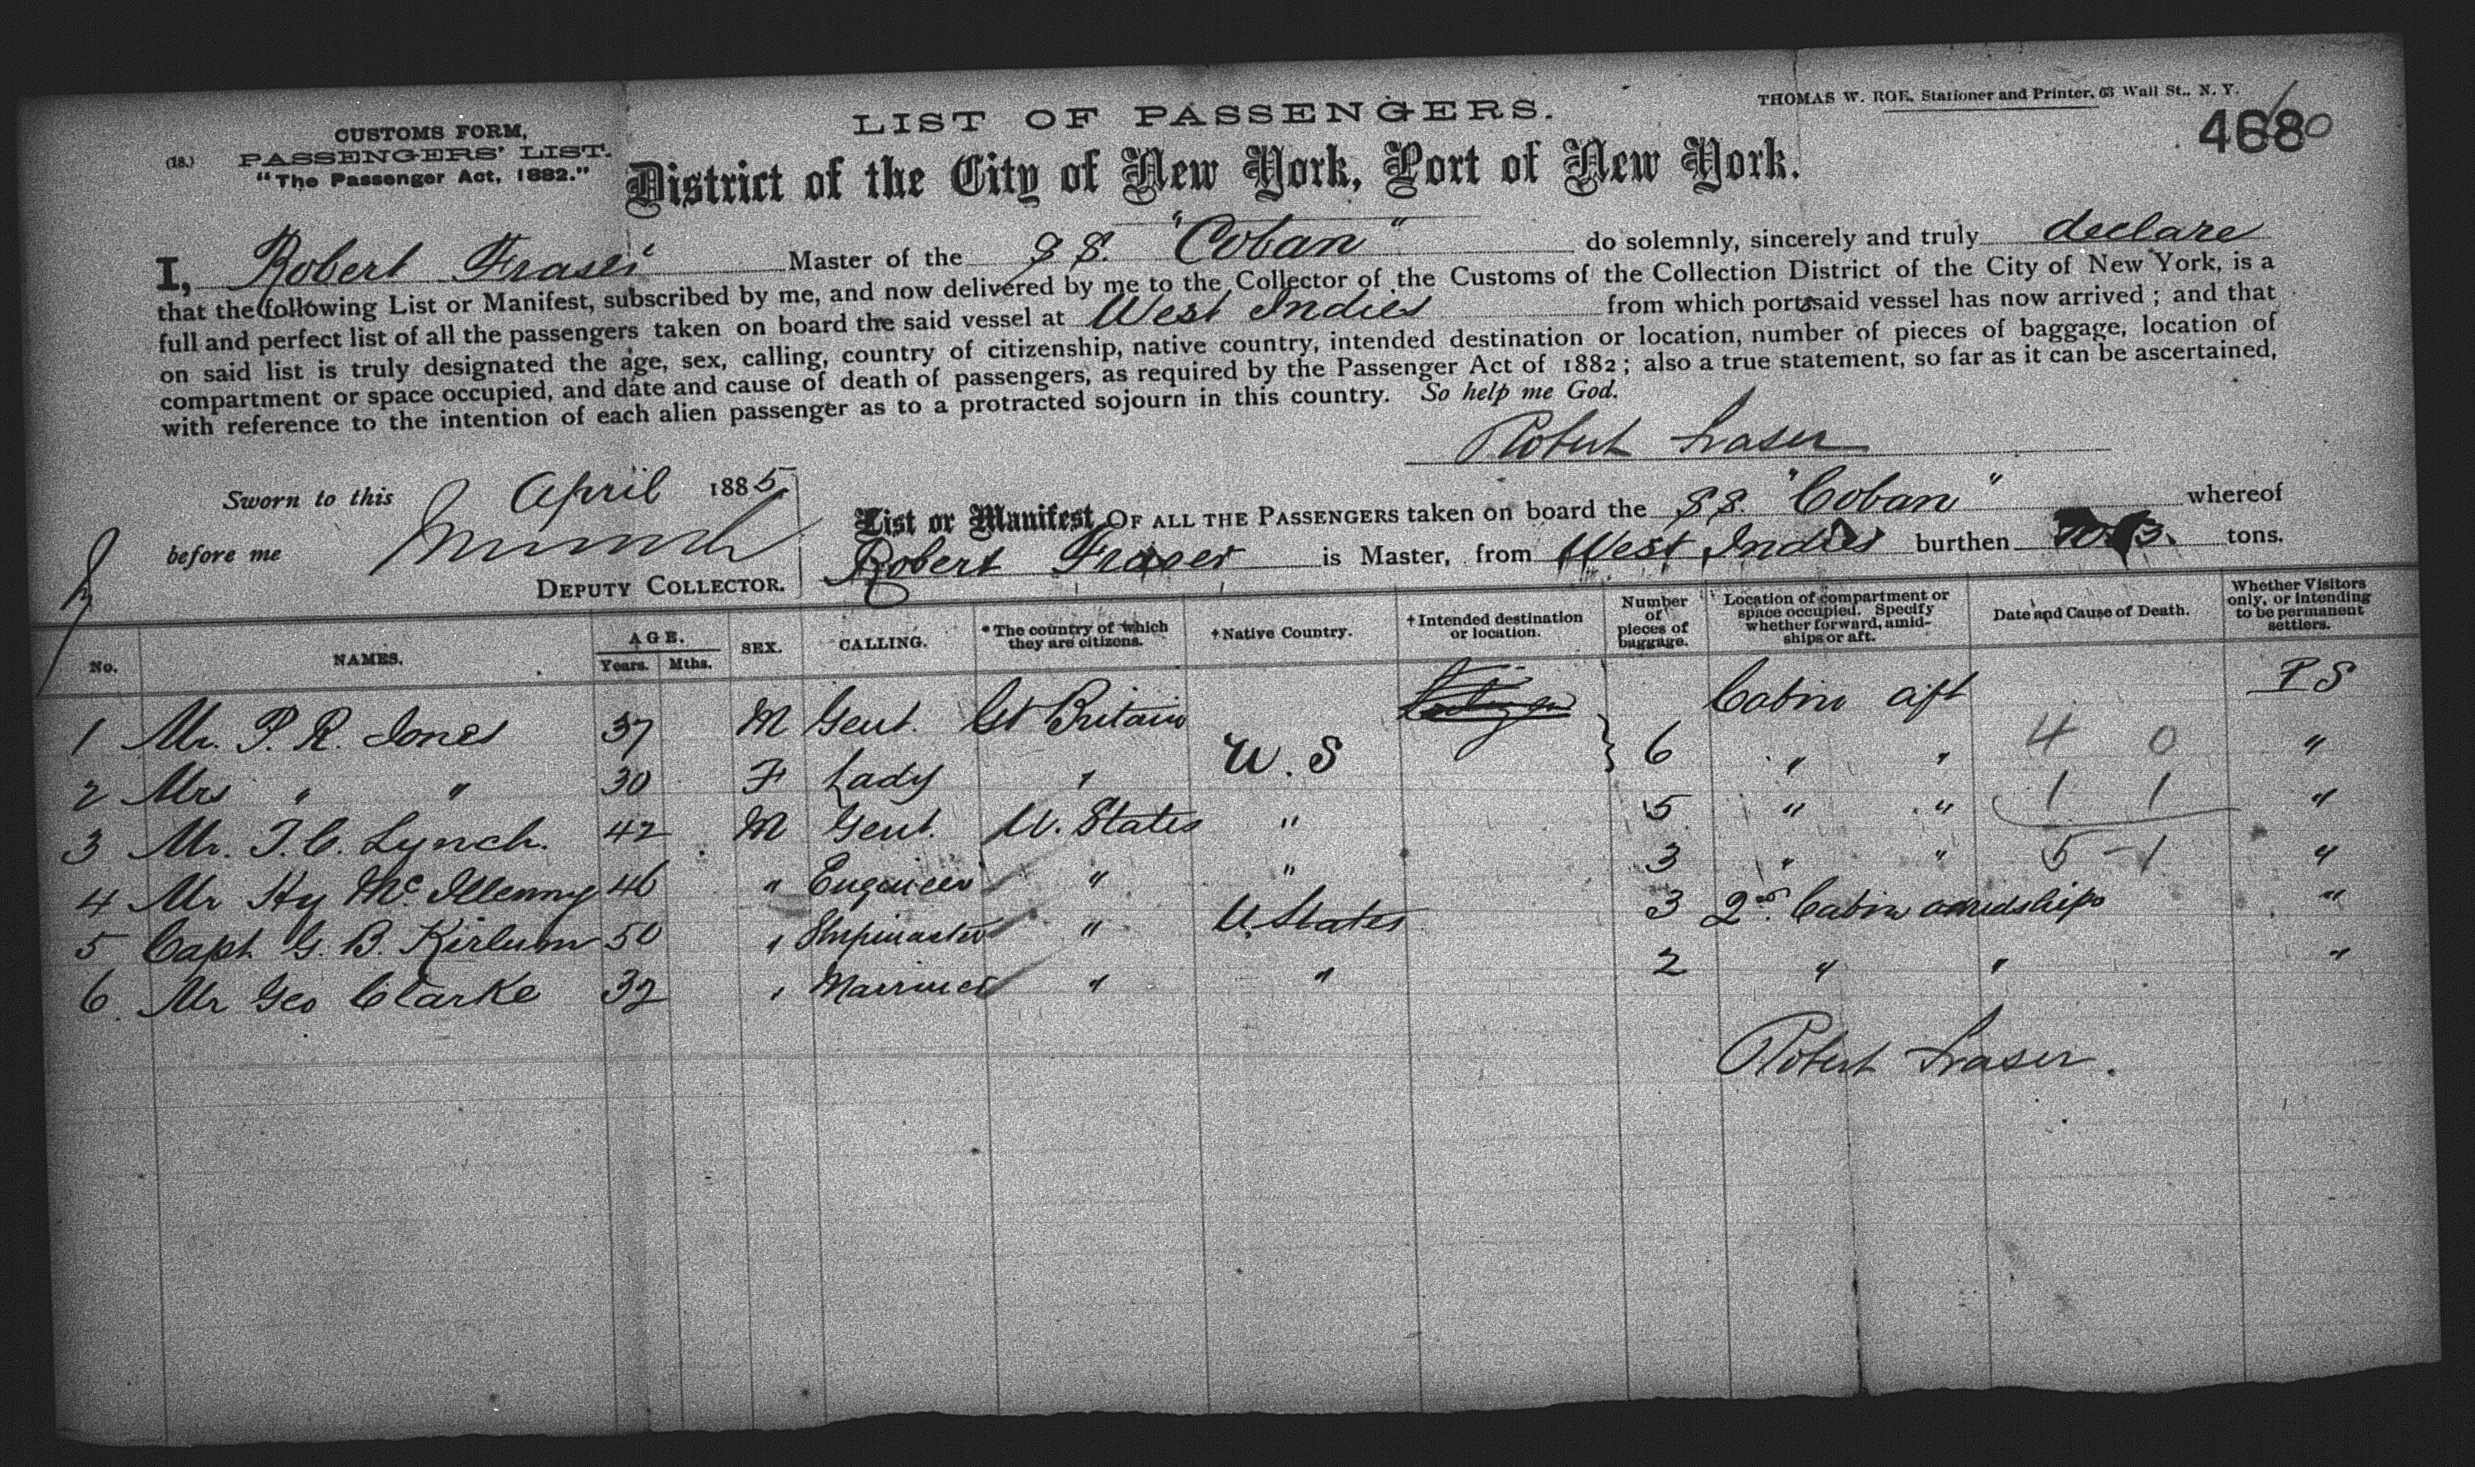 LIST OF PASSENGERS.
THOMAS W. ROE, Stationer and Printer, 63 Wall St., N. Y.
CUSTOMS FORM,
(18.) PASSENGERS' LIST.
"The Passenger Act, 1882."
468
District of the City of New York, Port of New York.
I, Robert Fraser Master of the S S. "Coban" do solemnly, sincerely and truly declare
that the following List or Manifest, subscribed by me, and now delivered by me to the Collector of the Customs of the Collection District of the City of New York, is a
full and perfect list of all the passengers taken on board the said vessel at West Indies from which ports said vessel has now arrived; and that
on said list is truly designated the age, sex, calling, country of citizenship, native country, intended destination or location, number of pieces of baggage, location of
compartment or space occupied, and date and cause of death of passengers, as required by the Passenger Act of 1882; also a true statement, so far as it can be ascertained,
with reference to the intention of each alien passenger as to a protracted sojourn in this country. So help me God.
Robert Fraser
Sworn to this April 1885
before me
DEPUTY COLLECTOR.
List or Manifest OF ALL THE PASSENGERS taken on board the S S. "Coban" whereof
Robert Fraser is Master, from West Indies burthen tons.
No. NAMES. AGE. Years. Mths. SEX. CALLING. *The country of which they are citizens. †Native Country. †Intended destination or location. Number of pieces of baggage. Location of compartment or space occupied. Specify whether forward, amidships or aft. Date and Cause of Death. Whether Visitors only, or intending to be permanent settlers.
1 Mr. P. R. Jones 37 M Gent. Gt Britain Cabin aft P S
2 Mrs " " 30 F Lady " U. S 6 " " 4 0 "
3 Mr. T. C. Lynch. 42 M Gent. U. States " 5 " " 1 1 "
4 Mr Hy Mc 46 " Engineer " " 3 " " 5 - 1 "
5 Capt G. B. 50 " Shipmaster " U. States 3 2nd Cabin amidships "
6 Mr Geo Clarke 32 " Marriner " " 2 " " "
Robert Fraser.